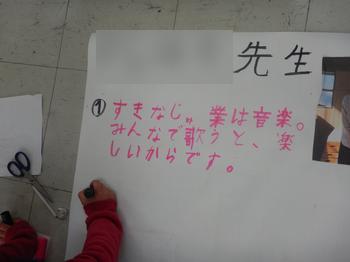 先生
①すきなじゅ業は音楽。
みんなで歌うと、楽
しいからです。